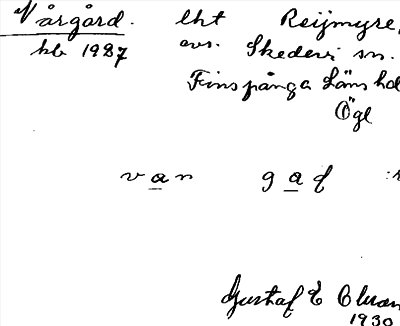 Vårgård. lht Reijmyre,
hb 1927 avs. Skedevi sn.
Finspånga Läns
Ögl
van gaf
Gustaf E
1930